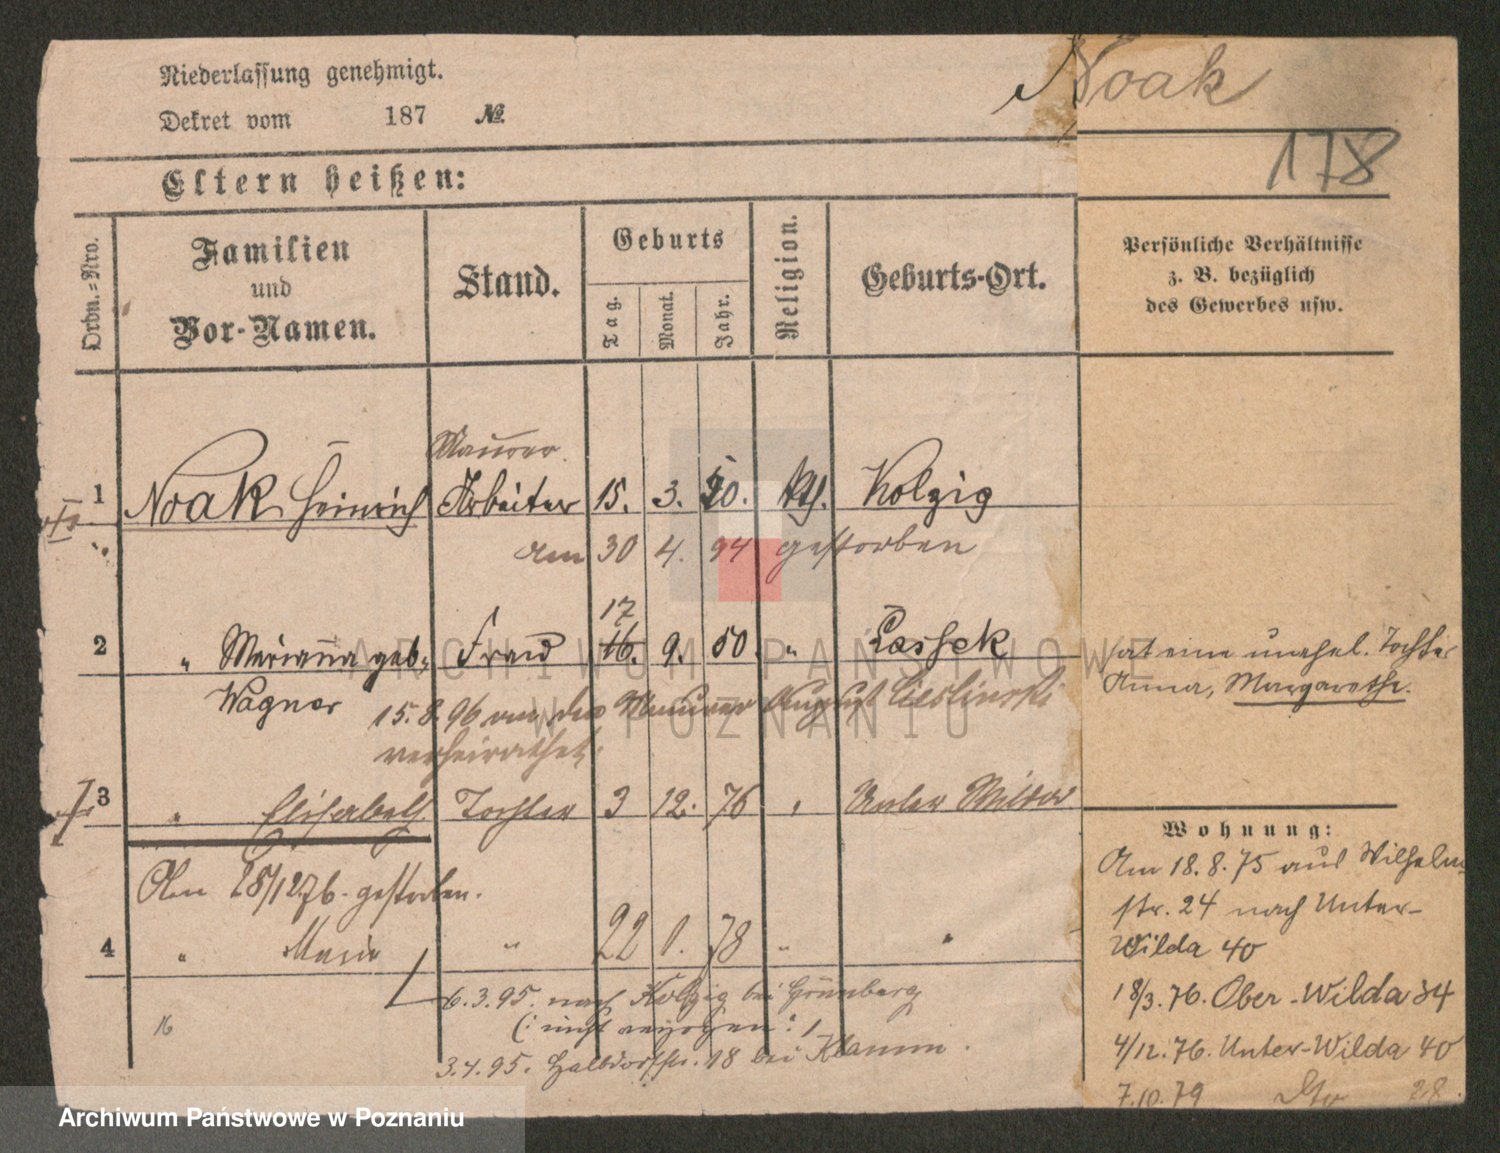 Niederlassung genehmigt.
Dekret vom 187 №.
Noak
178
Eltern heißen:
Ordn.=Nro.
Familien
und
Vor-Namen.
Stand.
Geburts
Tag.
Monat.
Jahr.
Religion.
Geburts-Ort.
Persönliche Verhältnisse
z. B. bezüglich
des Gewerbes usw.
Maurer.
1 Noak Heinrich Arbeiter 15. 3. 50. kth. Kolzig
am 30 4. 94 gestorben
17
2 " Marianna geb. Frau 16. 9. 50. " Lassek
Wagner 15.8.96 an den Maurer August Cieslinski
verheirathet.
hat eine unehel. Tochter
Anna, Margarethe.
3 " Elisabeth Tochter 3 12. 76 " Unter Wilda
Am 28/12.76. gestorben.
4 " Maria " 22 1. 78 " "
6.3.95. nach Kolzig bei Grünberg
(: nicht verzogen :)
3.4.95. Halbdorfstr. 18 bei Klamm.
16
Wohnung:
Am 18.8.75 aus Wilhelm-
str. 24 nach Unter-
Wilda 40
18/3.76. Ober-Wilda 34
4/12.76. Unter-Wilda 40
7.10.79 Dto 28
ARCHIWUM PAŃSTWOWE
W POZNANIU
Archiwum Państwowe w Poznaniu